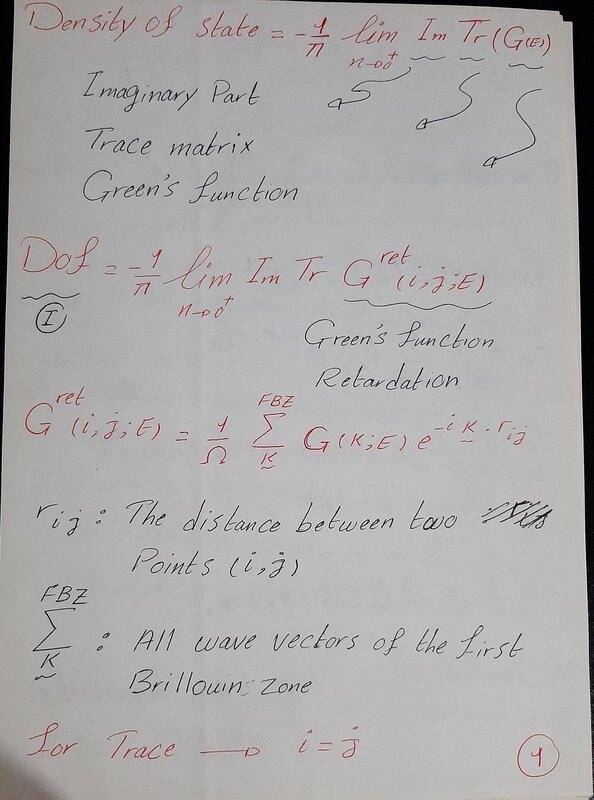 Density of state = -1/π lim n→0⁺ Im Tr (G(E))
Imaginary Part
Trace matrix
Green's function
Dof = -1/π lim n→0⁺ Im Tr G^ret (i,j;E)
I
Green's function
Retardation
G^ret (i,j;E) = 1/Ω Σ_K^FBZ G(K;E) e^(-i K · r_ij)
r_ij : The distance between two
Points (i,j)
Σ_K^FBZ : All wave vectors of the first
Brillouin zone
for Trace → i = j
1